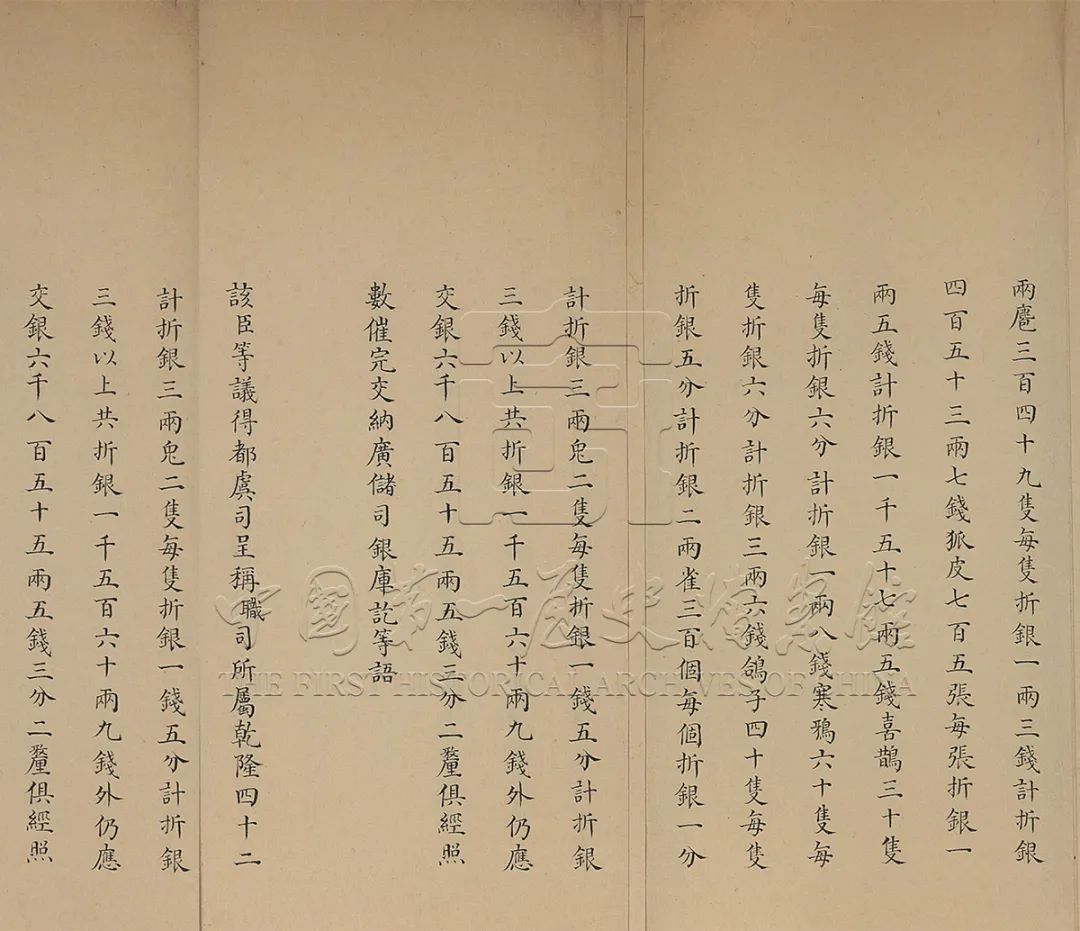 兩麅三百四十九隻每隻折銀一兩三錢計折銀
四百五十三兩七錢狐皮七百五張每張折銀一
兩五錢計折銀一千五十七兩五錢喜鵲三十隻
每隻折銀六分計折銀一兩八錢寒鴉六十隻每
隻折銀六分計折銀三兩六錢鴿子四十隻每隻
折銀五分計折銀二兩雀三百個每個折銀一分
計折銀三兩兔二隻每隻折銀一錢五分計折銀
三錢以上共折銀一千五百六十兩九錢外仍應
交銀六千八百五十五兩五錢三分二釐俱經照
數催完交納廣儲司銀庫訖等語
該臣等議得都虞司呈稱職司所屬乾隆四十二
計折銀三兩兔二隻每隻折銀一錢五分計折銀
三錢以上共折銀一千五百六十兩九錢外仍應
交銀六千八百五十五兩五錢三分二釐俱經照
中國第一歷史檔案館
THE FIRST HISTORICAL ARCHIVES OF CHINA